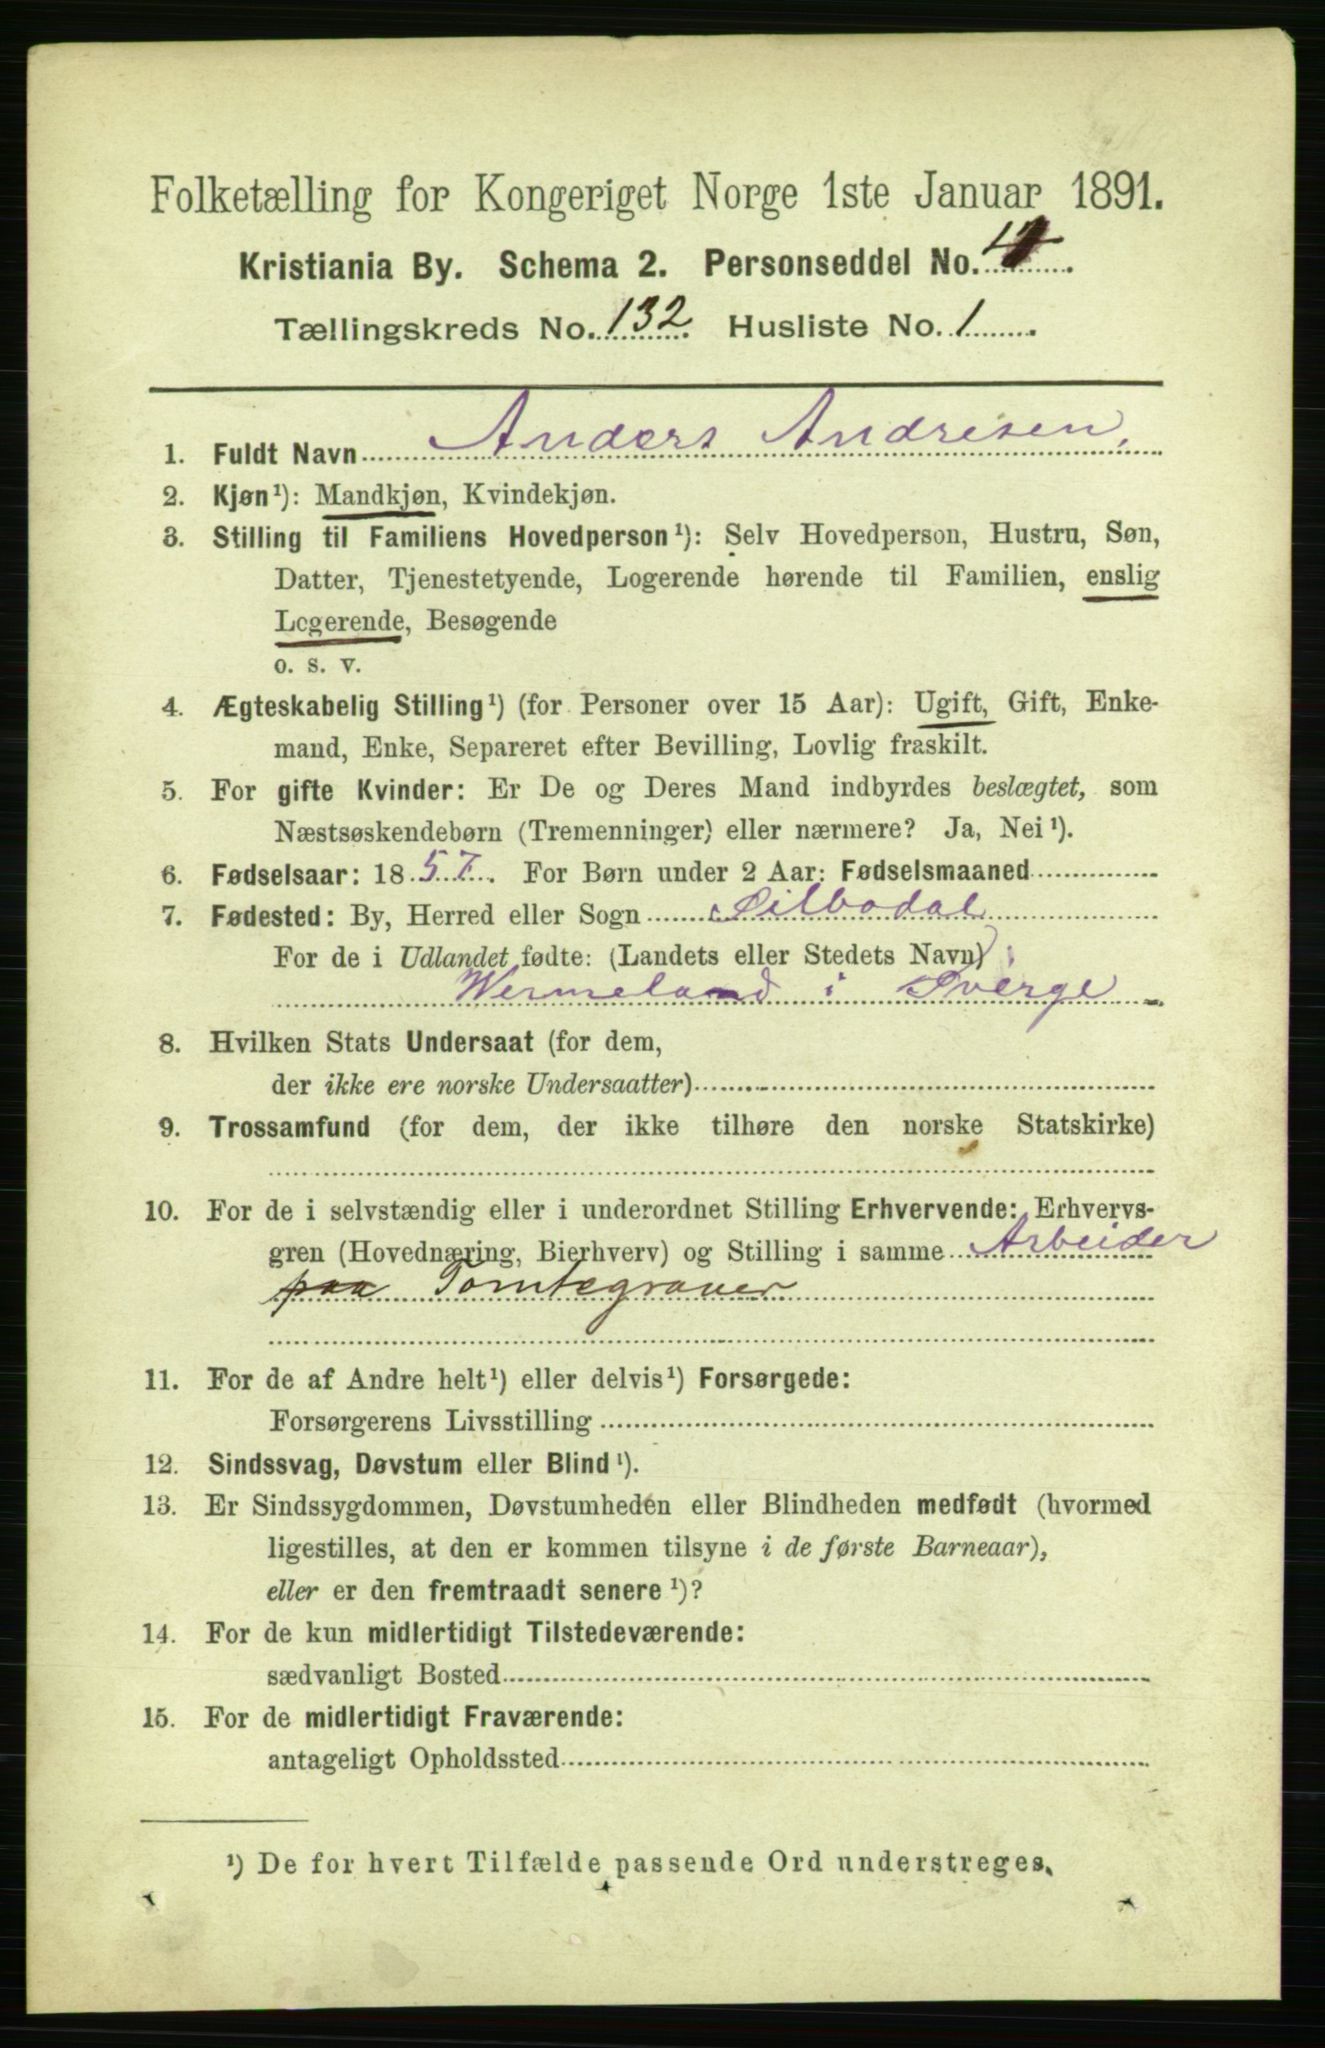 Folketælling for Kongeriget Norge 1ste Januar 1891.
Kristiania By. Schema 2. Personseddel No.
Tællingskreds No. 132. Husliste No. 1
1. Fuldt Navn Anders Andresen,
2. Kjøn¹): Mandkjøn, Kvindekjøn.
3. Stilling til Familiens Hovedperson¹): Selv Hovedperson, Hustru, Søn,
Datter, Tjenestetyende, Logerende hørende til Familien, enslig
Logerende, Besøgende
o. s. v.
4. Ægteskabelig Stilling¹) (for Personer over 15 Aar): Ugift, Gift, Enke-
mand, Enke, Separeret efter Bevilling, Lovlig fraskilt.
5. For gifte Kvinder: Er De og Deres Mand indbyrdes beslægtet, som
Næstsøskendebørn (Tremenninger) eller nærmere? Ja, Nei¹).
6. Fødselsaar: 1857. For Børn under 2 Aar: Fødselsmaaned
7. Fødested: By, Herred eller Sogn Silbodal
For de i Udlandet fødte: (Landets eller Stedets Navn)
Wermeland i Sverge
8. Hvilken Stats Undersaat (for dem,
der ikke ere norske Undersaatter)
9. Trossamfund (for dem, der ikke tilhøre den norske Statskirke)
10. For de i selvstændig eller i underordnet Stilling Erhvervende: Erhvervs-
gren (Hovednæring, Bierhverv) og Stilling i samme Arbeider
paa Tomtegraver
11. For de af Andre helt¹) eller delvis¹) Forsørgede:
Forsørgerens Livsstilling
12. Sindssvag, Døvstum eller Blind¹).
13. Er Sindssygdommen, Døvstumheden eller Blindheden medfødt (hvormed
ligestilles, at den er kommen tilsyne i de første Barneaar),
eller er den fremtraadt senere¹)?
14. For de kun midlertidigt Tilstedeværende:
sædvanligt Bosted
15. For de midlertidigt Fraværende:
antageligt Opholdssted
¹) De for hvert Tilfælde passende Ord understreges.